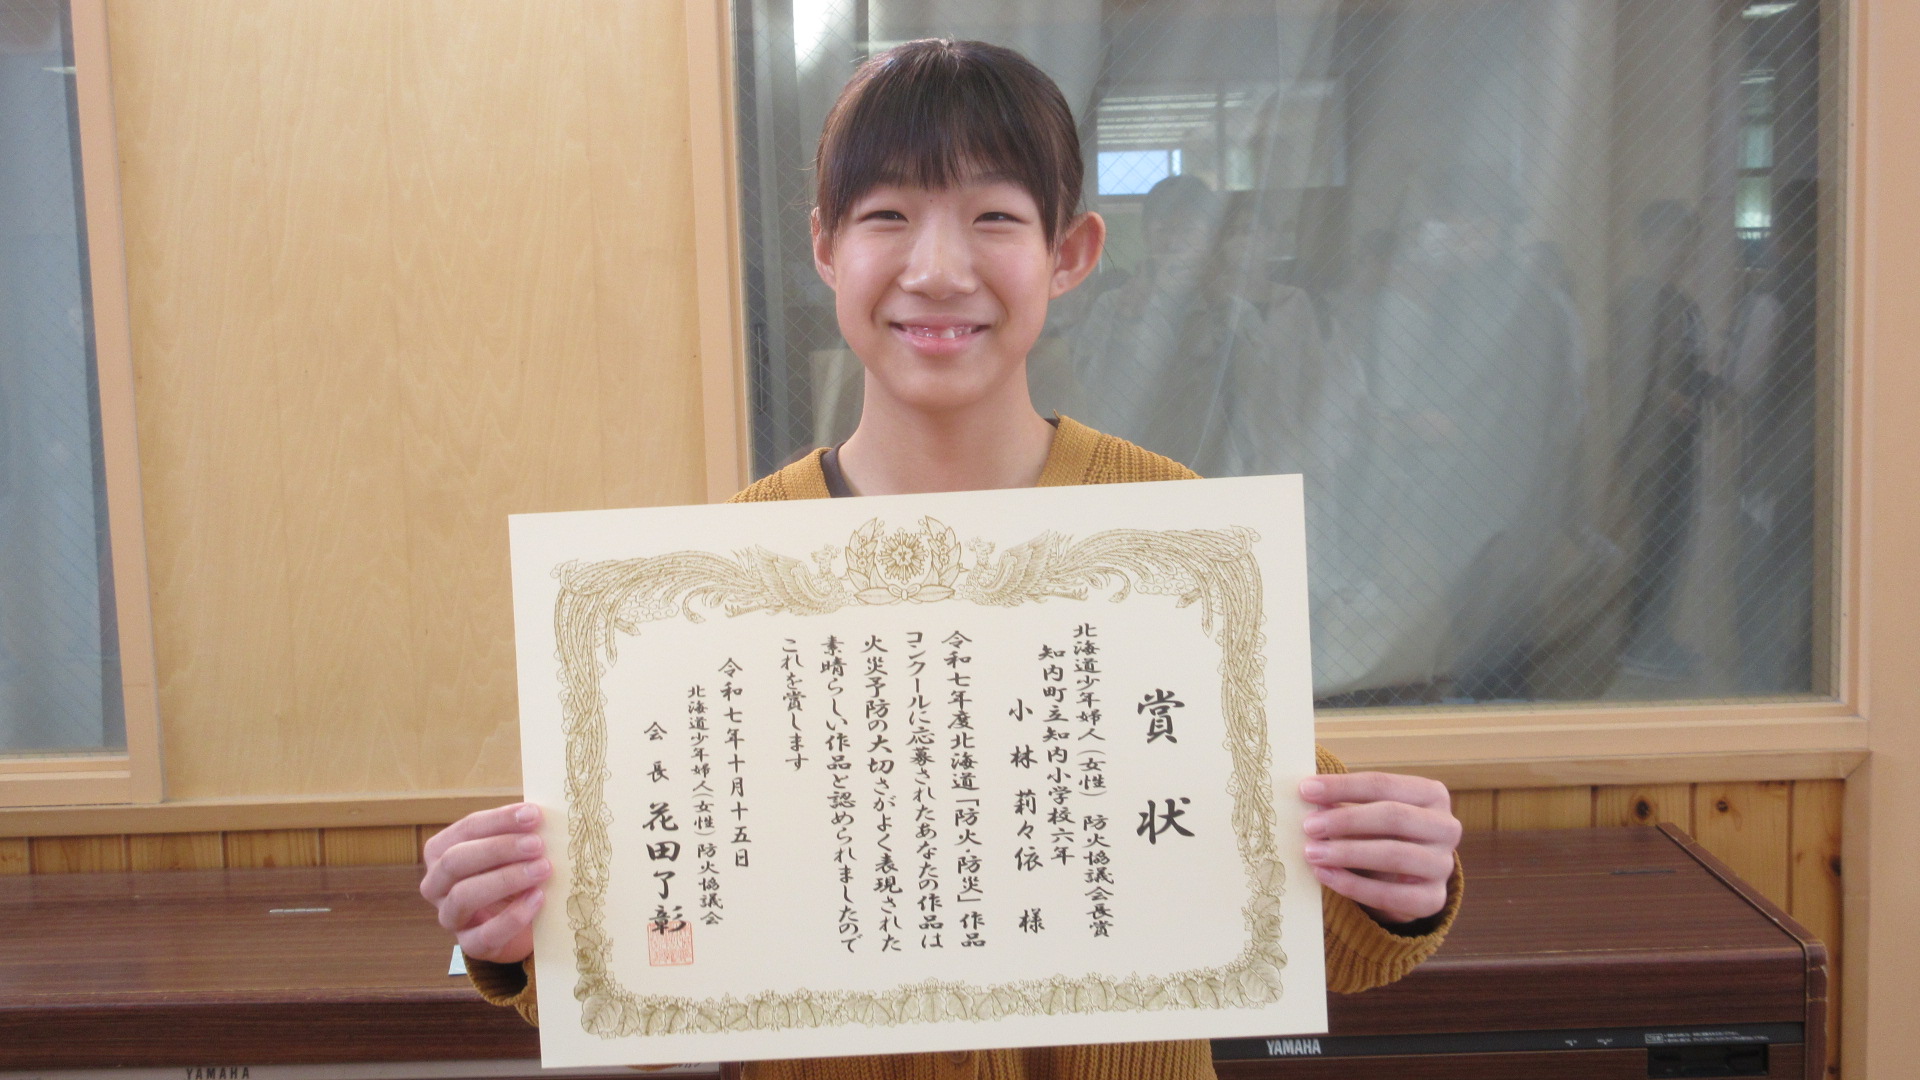 賞状
北海道少年婦人(女性)防火協議会長賞
知内町立知内小学校六年
小林莉々依 様
令和七年度北海道「防火・防災」作品
コンクールに応募されたあなたの作品は
火災予防の大切さがよく表現された
素晴らしい作品と認められましたので
これを賞します
令和七年十月十五日
北海道少年婦人(女性)防火協議会
会長 花田了彰
YAMAHA
YAMAHA